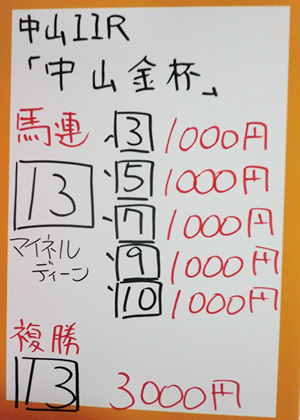 中山11R
「中山金杯」
馬連 3 1000円
5 1000円
13 7 1000円
マイネル 9 1000円
ディーン 10 1000円
複勝
13 3000円